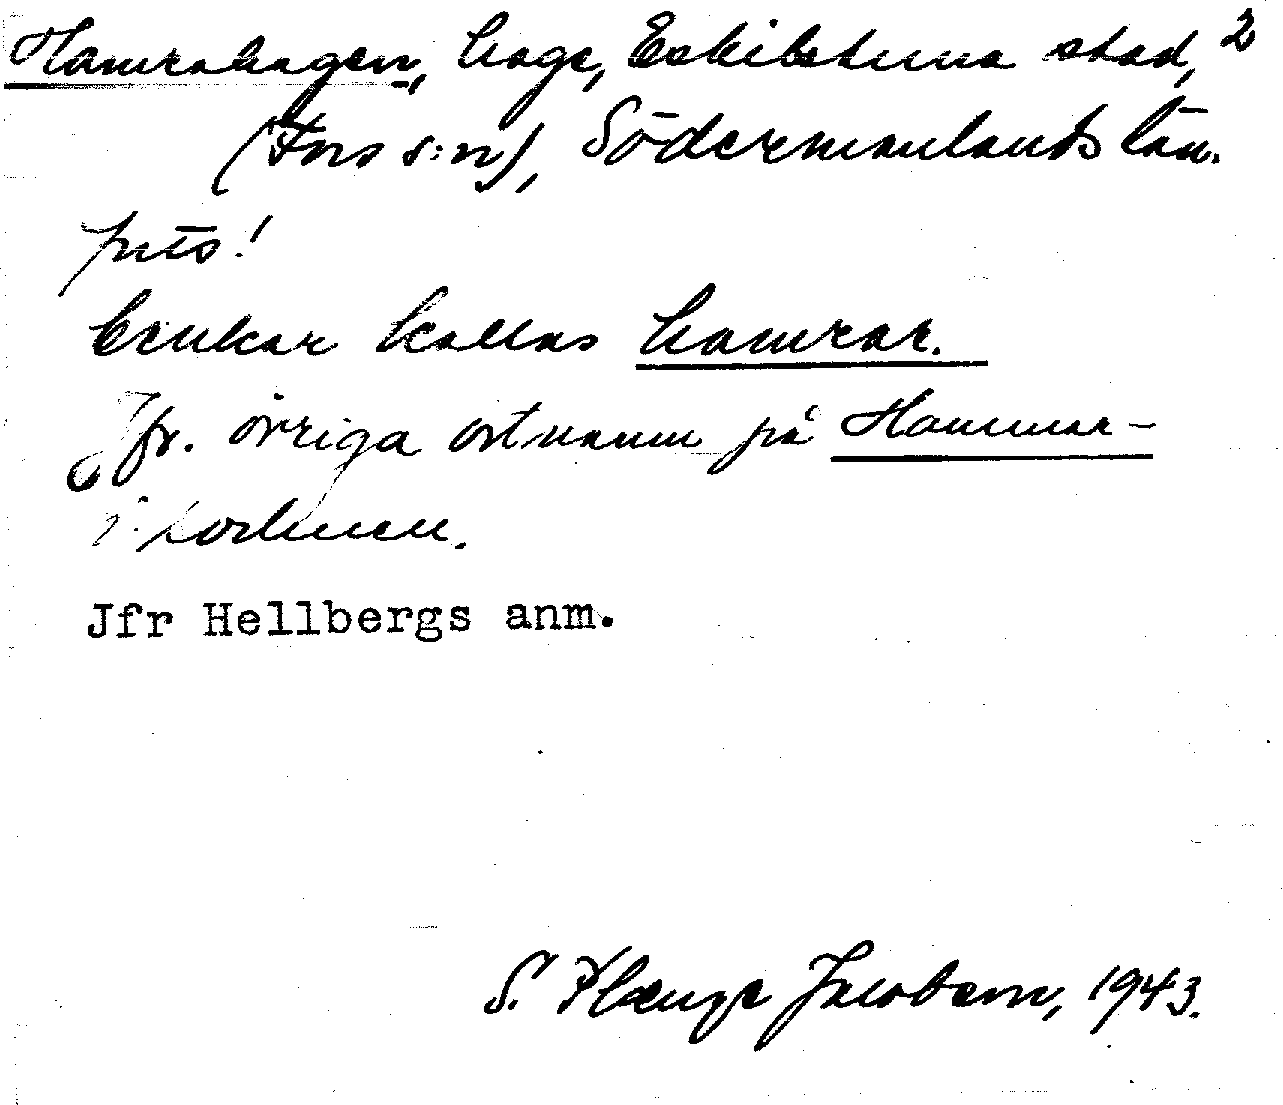 Hamrahagen, hage, Eskilstuna stad, 2
(Fors s:n), Södermanlands län.
finis!
Backar kallas hamrar.
Jfr. övriga ortnamn på Hammar-
i socknen.
Jfr Hellbergs anm.
S. Plenge Jacobsen, 1943.